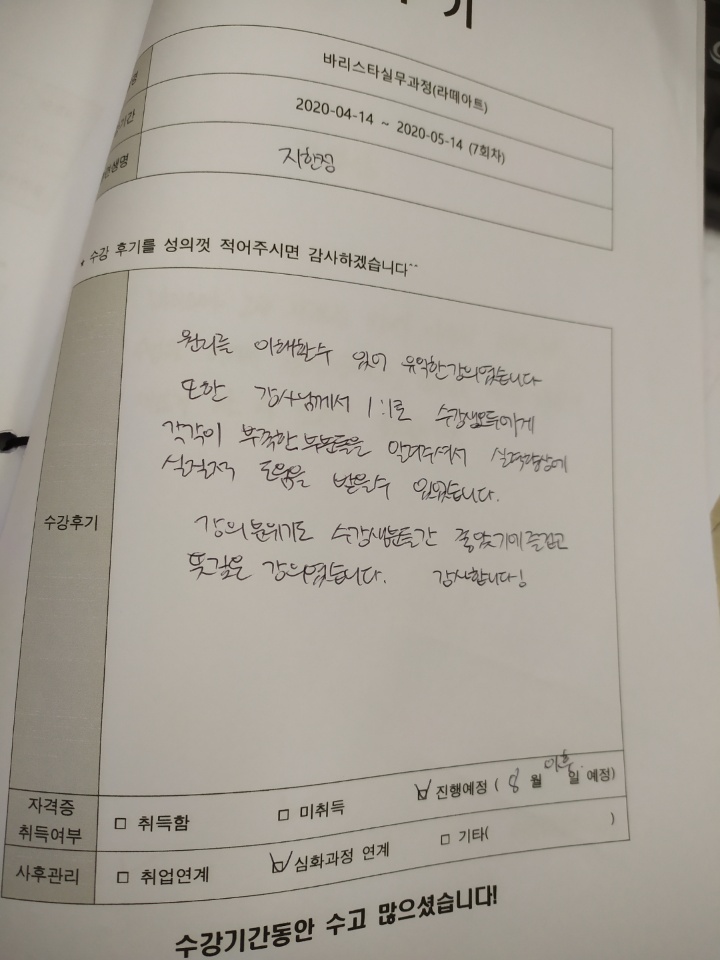 기
명 바리스타실무과정(라떼아트)
기간 2020-04-14 ~ 2020-05-14 (7회차)
생명 지현정
* 수강 후기를 성의껏 적어주시면 감사하겠습니다^^
원리를 이해할수 있어 유익한강의였습니다
또한 강사님께서 1:1로 수강생모두에게
각각이 부족한 부분들을 알려주셔서 실력향상에
실질적 도움을 받을수 있었습니다.
수강후기
강의분위기도 수강생분들간 좋았기에 즐겁고
뜻깊은 강의였습니다. 감사합니다!
자격증
취득여부
□ 취득함 □ 미취득 ☑ 진행예정 ( 8 월 이후 일 예정)
사후관리 □ 취업연계 ☑ 심화과정 연계 □ 기타( )
수강기간동안 수고 많으셨습니다!